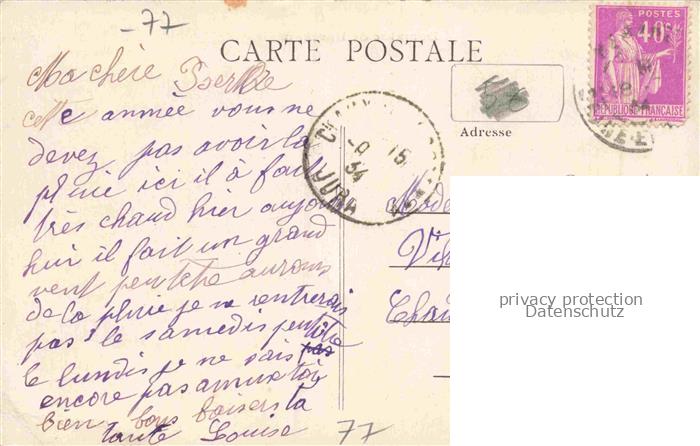 -77
CARTE POSTALE
POSTES
40c
RÉPUBLIQUE FRANÇAISE
Ma chère
cette année vous ne
devez pas avoir la
pluie ici il à fait
très chaud hier aujour
hui il fait un grand
vent peutetre aurons
de la pluie je ne rentrerais
pas le samedis peutetre
le lundis je ne sais pas
encore pas amuse toi
bien bons baisers ta
tante Louise
77
Adresse
JURA
15
-9
34
Made
Vil
privacy protection
Datenschutz